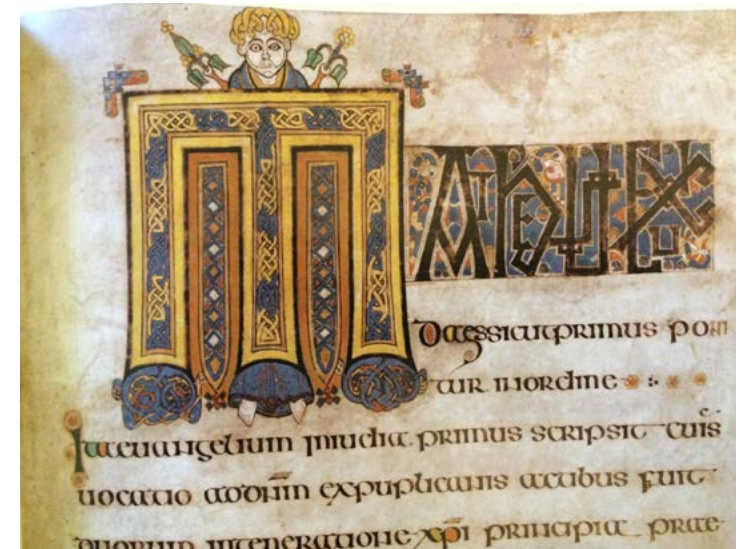 MATHEUS EX IU
Daessicutprimus poni
tur inordine
Itaeuangelium iniudia primus scripsit cuis
uocatio addnm expuplicanis actibus fuit
duorum ingeneratione xpi principia prae